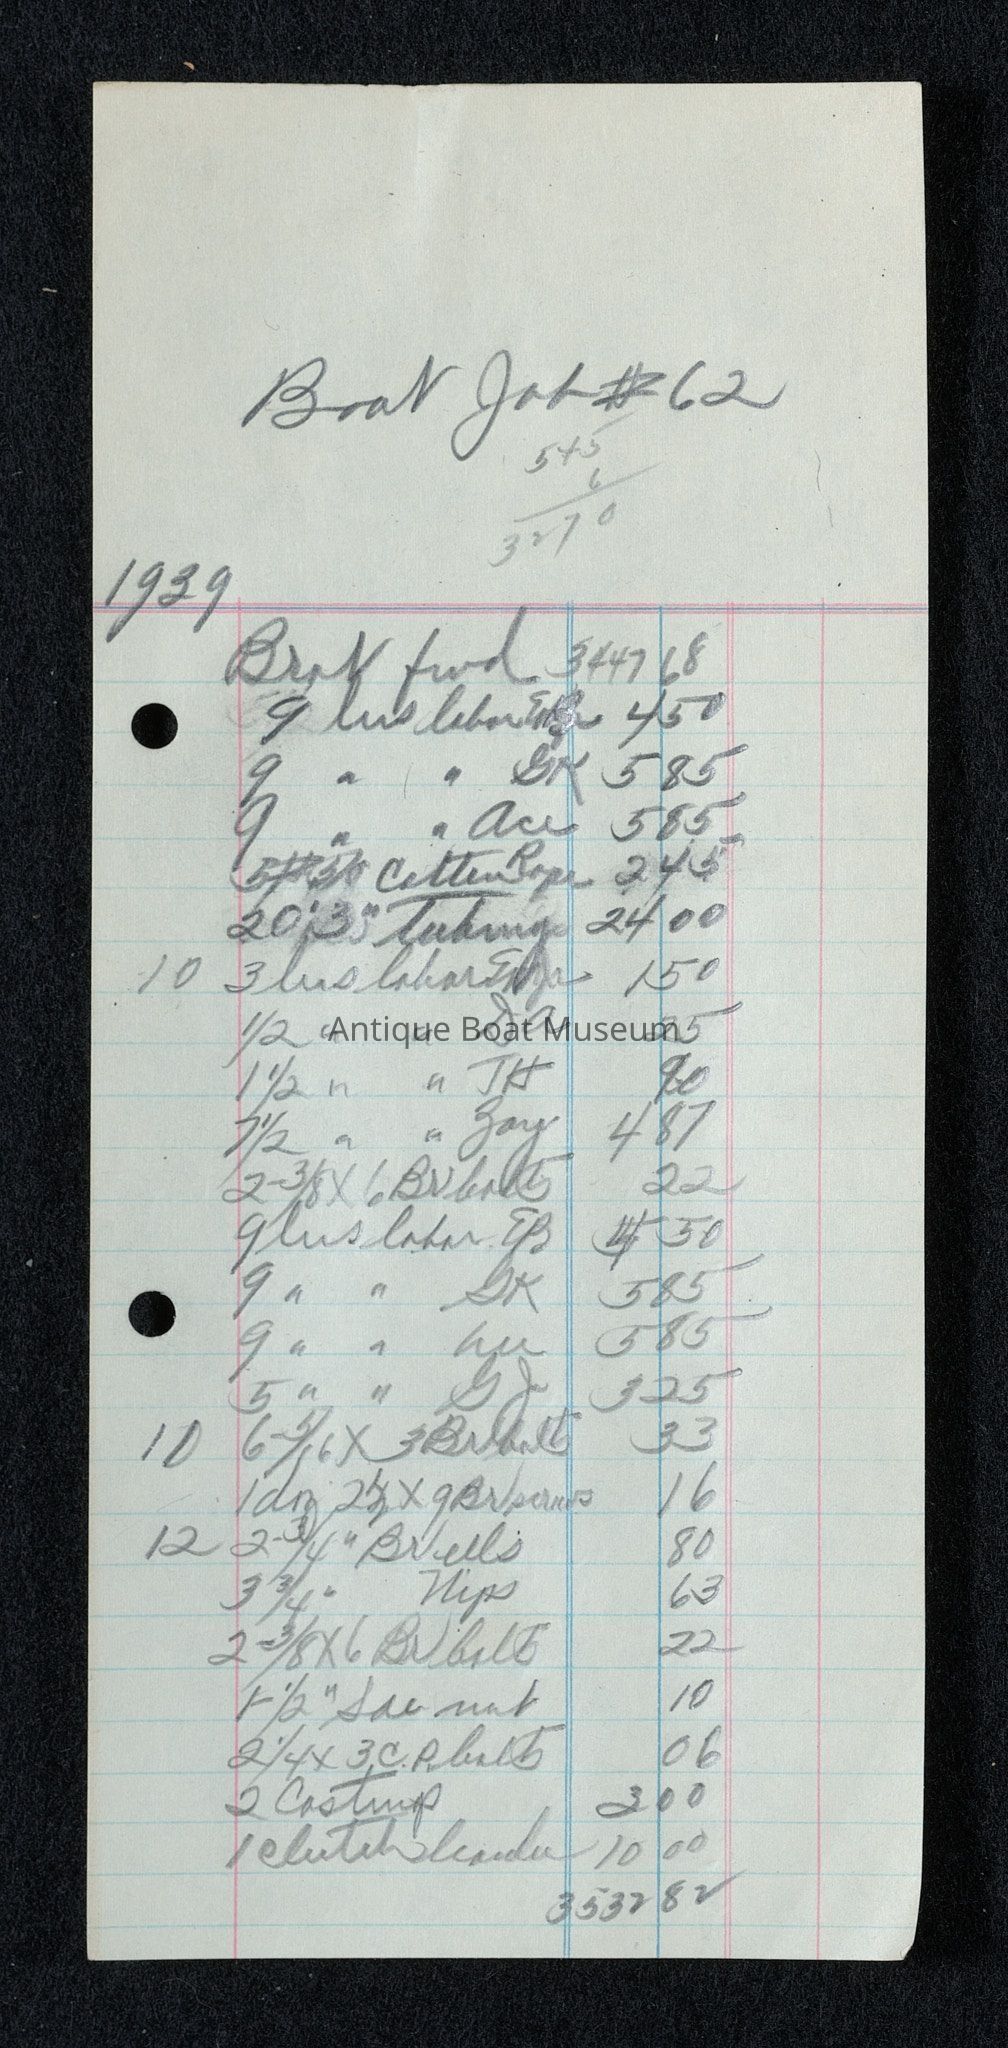 Boat Job #62
545
6
3270
1939
Brot fwd 3447 68
9 hrs labor 4 50
9 " " GK 5 85
9 " " Ace 5 85
5# Cotton Rope 2 45
20' 3" tubing 24 00
10 3 hrs labor 1 50
1/2 " "
Antique Boat Museum
1 1/2 " " JH 90
7 1/2 " " Gary 4 87
2-3/8 X 6 Br bolts 22
9 hrs labor EB 4 50
9 " " GK 5 85
9 " " Ace 5 85
5 " " GJ 3 25
10 6-5/16 X 3 Br bolts 33
1 doz 2 1/2 X 9 Br screws 16
12 2-3/4" Br ells 80
3 3/4" Nips 63
2-3/8 X 6 Br bolts 22
1-1/2" Sae nut 10
2 1/4 x 3 C.P. bolts 06
2 Castings 3 00
1 clutch 10 00
3532 82